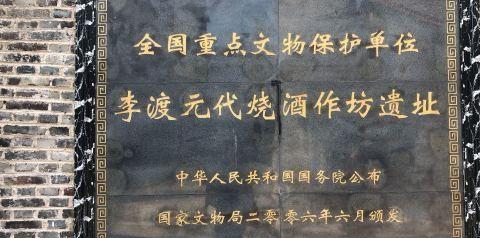 全国重点文物保护单位
李渡元代烧酒作坊遗址
中华人民共和国国务院公布
国家文物局二零零六年六月颁发